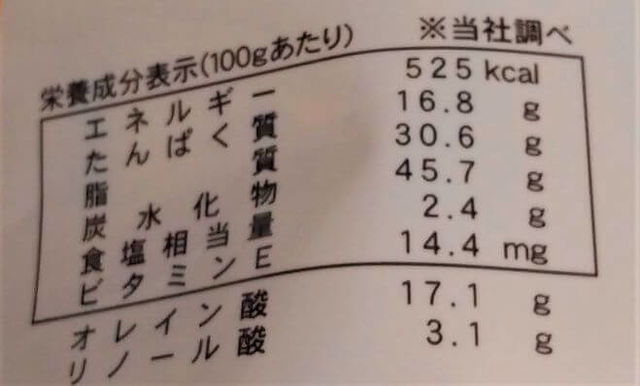 栄養成分表示(100gあたり) ※当社調べ
エネルギー 525kcal
たんぱく質 16.8g
脂質 30.6g
炭水化物 45.7g
食塩相当量 2.4g
ビタミンE 14.4mg
オレイン酸 17.1g
リノール酸 3.1g